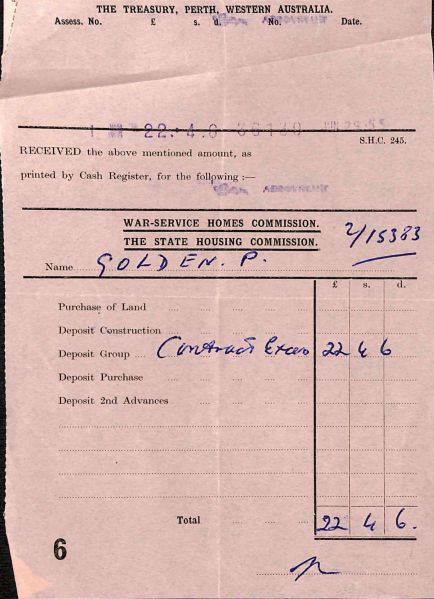 THE TREASURY, PERTH, WESTERN AUSTRALIA.
Assess. No. £ s. d. No. Date.
22.-4.6
S.H.C. 245.
RECEIVED the above mentioned amount, as
printed by Cash Register, for the following :—
WAR-SERVICE HOMES COMMISSION.
THE STATE HOUSING COMMISSION.
2/15383
Name GOLDEN. P.
£ s. d.
Purchase of Land
Deposit Construction
Deposit Group Contract Exces 22 4 6
Deposit Purchase
Deposit 2nd Advances
Total 22 4 6.
6